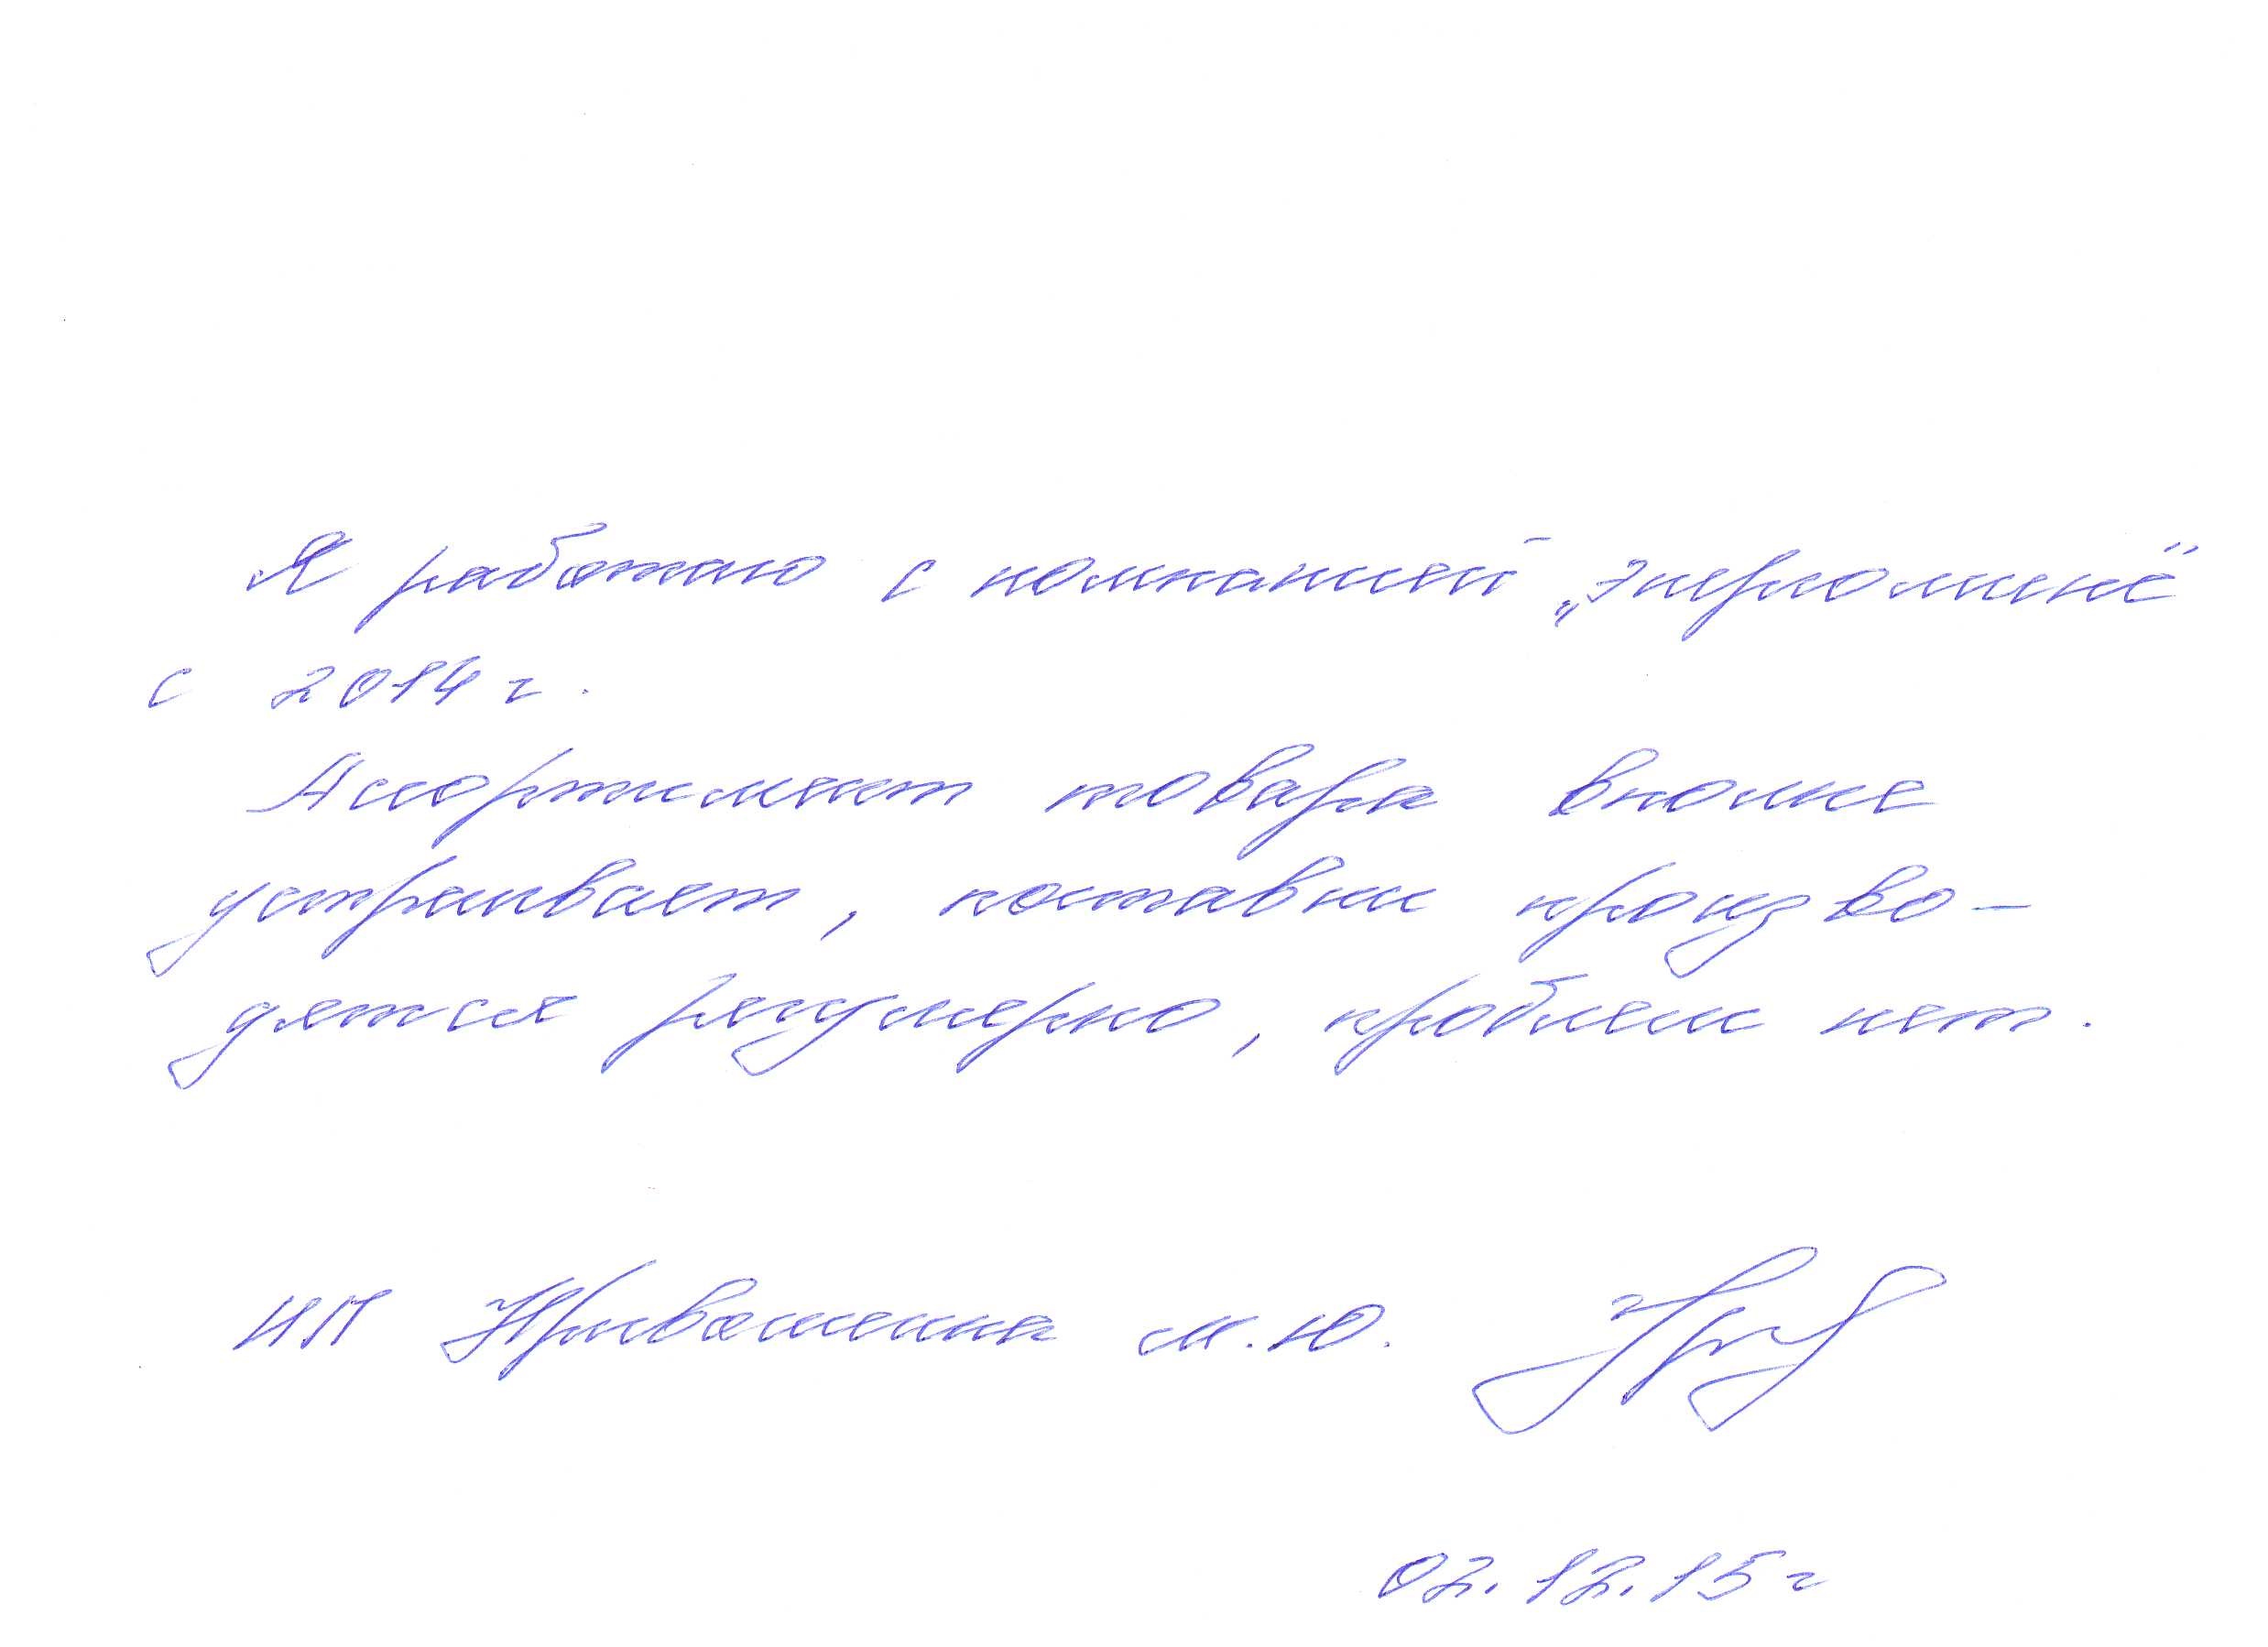 Я работаю с компанией
с 2014 г.
Ассортимент товара вполне
устраивает, поставки произво-
дятся регулярно, проблем нет.
ИП М.Ю.
02.12.15 г